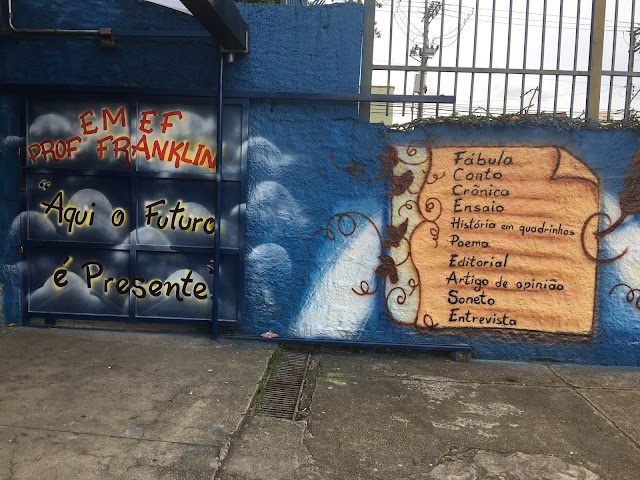 EMEF
PROF FRANKLIN
"Aqui o Futuro
é Presente"
Fábula
Conto
Crônica
Ensaio
História em quadrinhos
Poema
Editorial
Artigo de opinião
Soneto
Entrevista